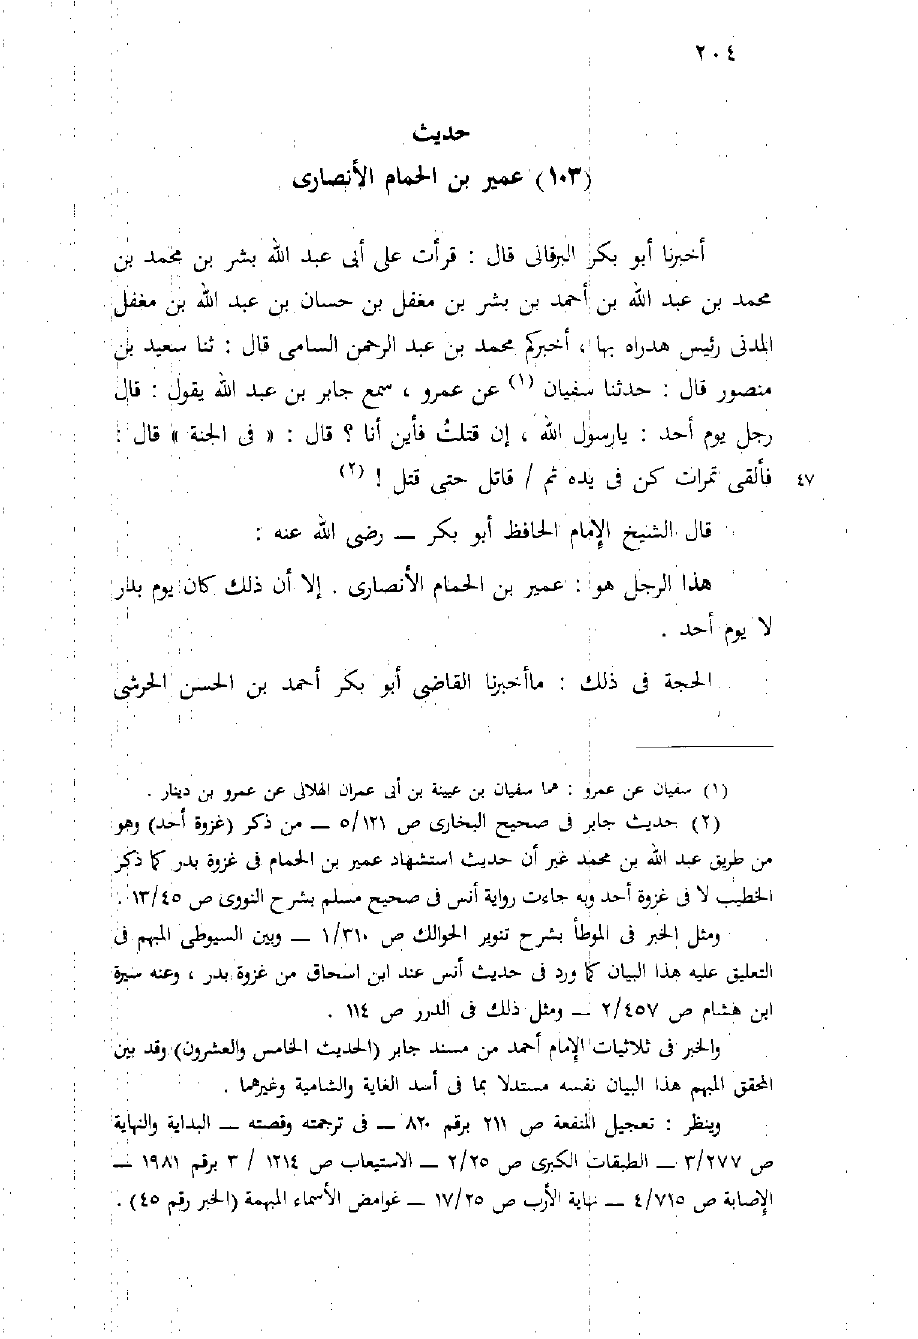 ٢٠٤
حديث
(١٠٣) عمير بن الحمام الأنصارى
أخبرنا أبو بكر البرقانى قال : قرأت على أبى عبد الله بشر بن محمد بن
محمد بن عبد الله بن أحمد بن بشر بن مغفل بن حسان بن عبد الله بن مغفل
المدنى رئيس هدراه بها ، أخبركم محمد بن عبد الرحمن السامى قال : ثنا سعيد بن
منصور قال : حدثنا سفيان (١) عن عمرو ، سمع جابر بن عبد الله يقول : قال
رجل يوم أحد : يارسول الله ، إن قتلتُ فأين أنا ؟ قال : « فى الجنة » قال :
فألقى تمرات كن فى يده ثم / قاتل حتى قتل ! (٢) ٤٧
قال الشيخ الإمام الحافظ أبو بكر — رضى الله عنه :
هذا الرجل هو : عمير بن الحمام الأنصارى . إلا أن ذلك كان يوم بدر
لا يوم أحد .
الحجة فى ذلك : ماأخبرنا القاضى أبو بكر أحمد بن الحسن الحرشى
(١) سفيان عن عمرو : هما سفيان بن عيينة بن أبى عمران الهلالى عن عمرو بن دينار .
(٢) حديث جابر فى صحيح البخارى ص ٥/١٢١ — من ذكر (غزوة أحد) وهو
من طريق عبد الله بن محمد غير أن حديث استشهاد عمير بن الحمام فى غزوة بدر كما ذكر
الخطيب لا فى غزوة أحد وبه جاءت رواية أنس فى صحيح مسلم بشرح النووى ص ١٣/٤٥ .
ومثل الخبر فى الموطأ بشرح تنوير الحوالك ص ١/٣١٠ — وبين السيوطى المبهم فى
التعليق عليه هذا البيان كما ورد فى حديث أنس عند ابن اسحاق من غزوة بدر ، وعنه سيرة
ابن هشام ص ٢/٤٥٧ — ومثل ذلك فى الدرر ص ١١٤ .
والخبر فى ثلاثيات الإمام أحمد من مسند جابر (الحديث الخامس والعشرون) وقد بين
المحقق المبهم هذا البيان نفسه مستدلا بما فى أسد الغاية والشامية وغيرهما .
وينظر : تعجيل المنفعة ص ٢١١ برقم ٨٢٠ — فى ترجمته وقصته — البداية والنهاية
ص ٣/٢٧٧ — الطبقات الكبرى ص ٢/٢٥ — الاستيعاب ص ١٢١٤ / ٣ برقم ١٩٨١ —
الإصابة ص ٤/٧١٥ — نهاية الأرب ص ١٧/٢٥ — غوامض الأسماء المبهمة (الخبر رقم ٤٥) .